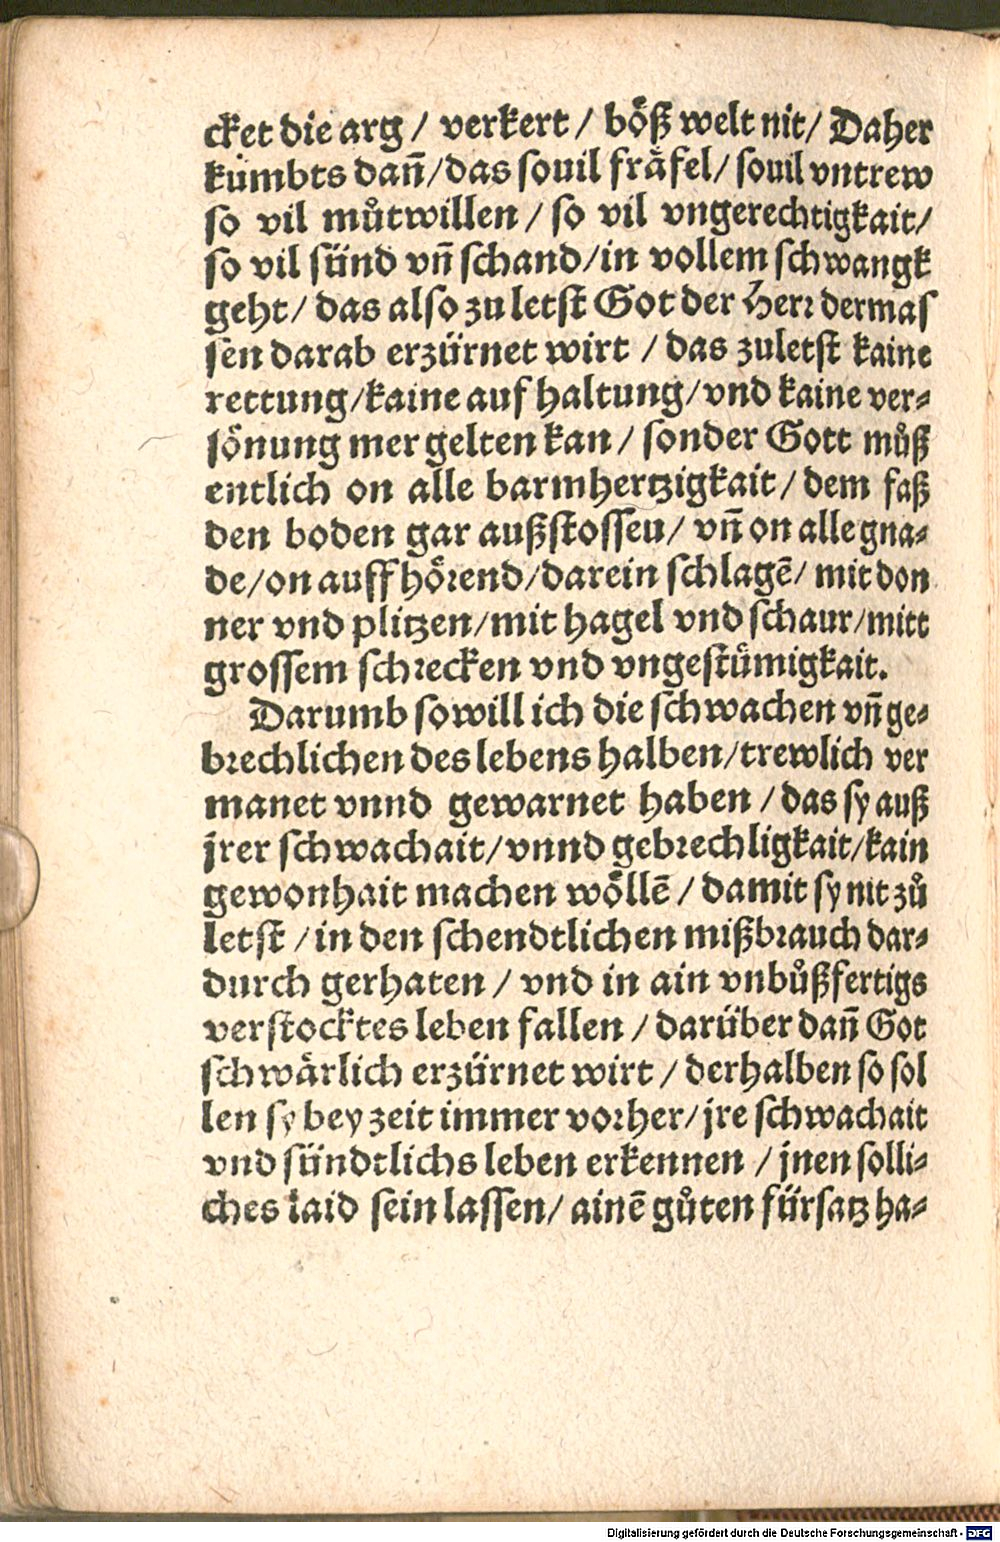 cket die arg / verkert / böß welt nit / Daher
kümbts dañ / das souil fräfel / souil vntrew
so vil můtwillen / so vil vngerechtigkait /
so vil sünd vñ schand / in vollem schwangk
geht / das also zu letst Got der Herr dermas
sen darab erzürnet wirt / das zuletst kaine
rettung / kaine auf haltung / vnd kaine ver⸗
sönung mer gelten kan / sonder Gott můß
entlich on alle barmhertzigkait / dem faß
den boden gar außstosseu / vñ on alle gna⸗
de / on auff hörend / darein schlagē / mit don
ner vnd plitzen / mit hagel vnd schaur / mitt
grossem schrecken vnd vngestümigkait.
Darumb so will ich die schwachen vñ ge⸗
brechlichen des lebens halben / trewlich ver
manet vnnd gewarnet haben / das sy auß
jrer schwachait / vnnd gebrechligkait / kain
gewonhait machen wöllē / damit sy nit zů
letst / in den schendtlichen mißbrauch dar⸗
durch gerhaten / vnd in ain vnbůßfertigs
verstocktes leben fallen / darüber dañ Got
schwärlich erzürnet wirt / derhalben so sol
len sy bey zeit immer vorher / jre schwachait
vnd sündtlichs leben erkennen / jnen solli⸗
ches laid sein lassen / ainē gůten fürsatz ha⸗
Digitalisierung gefördert durch die Deutsche Forschungsgemeinschaft - DFG